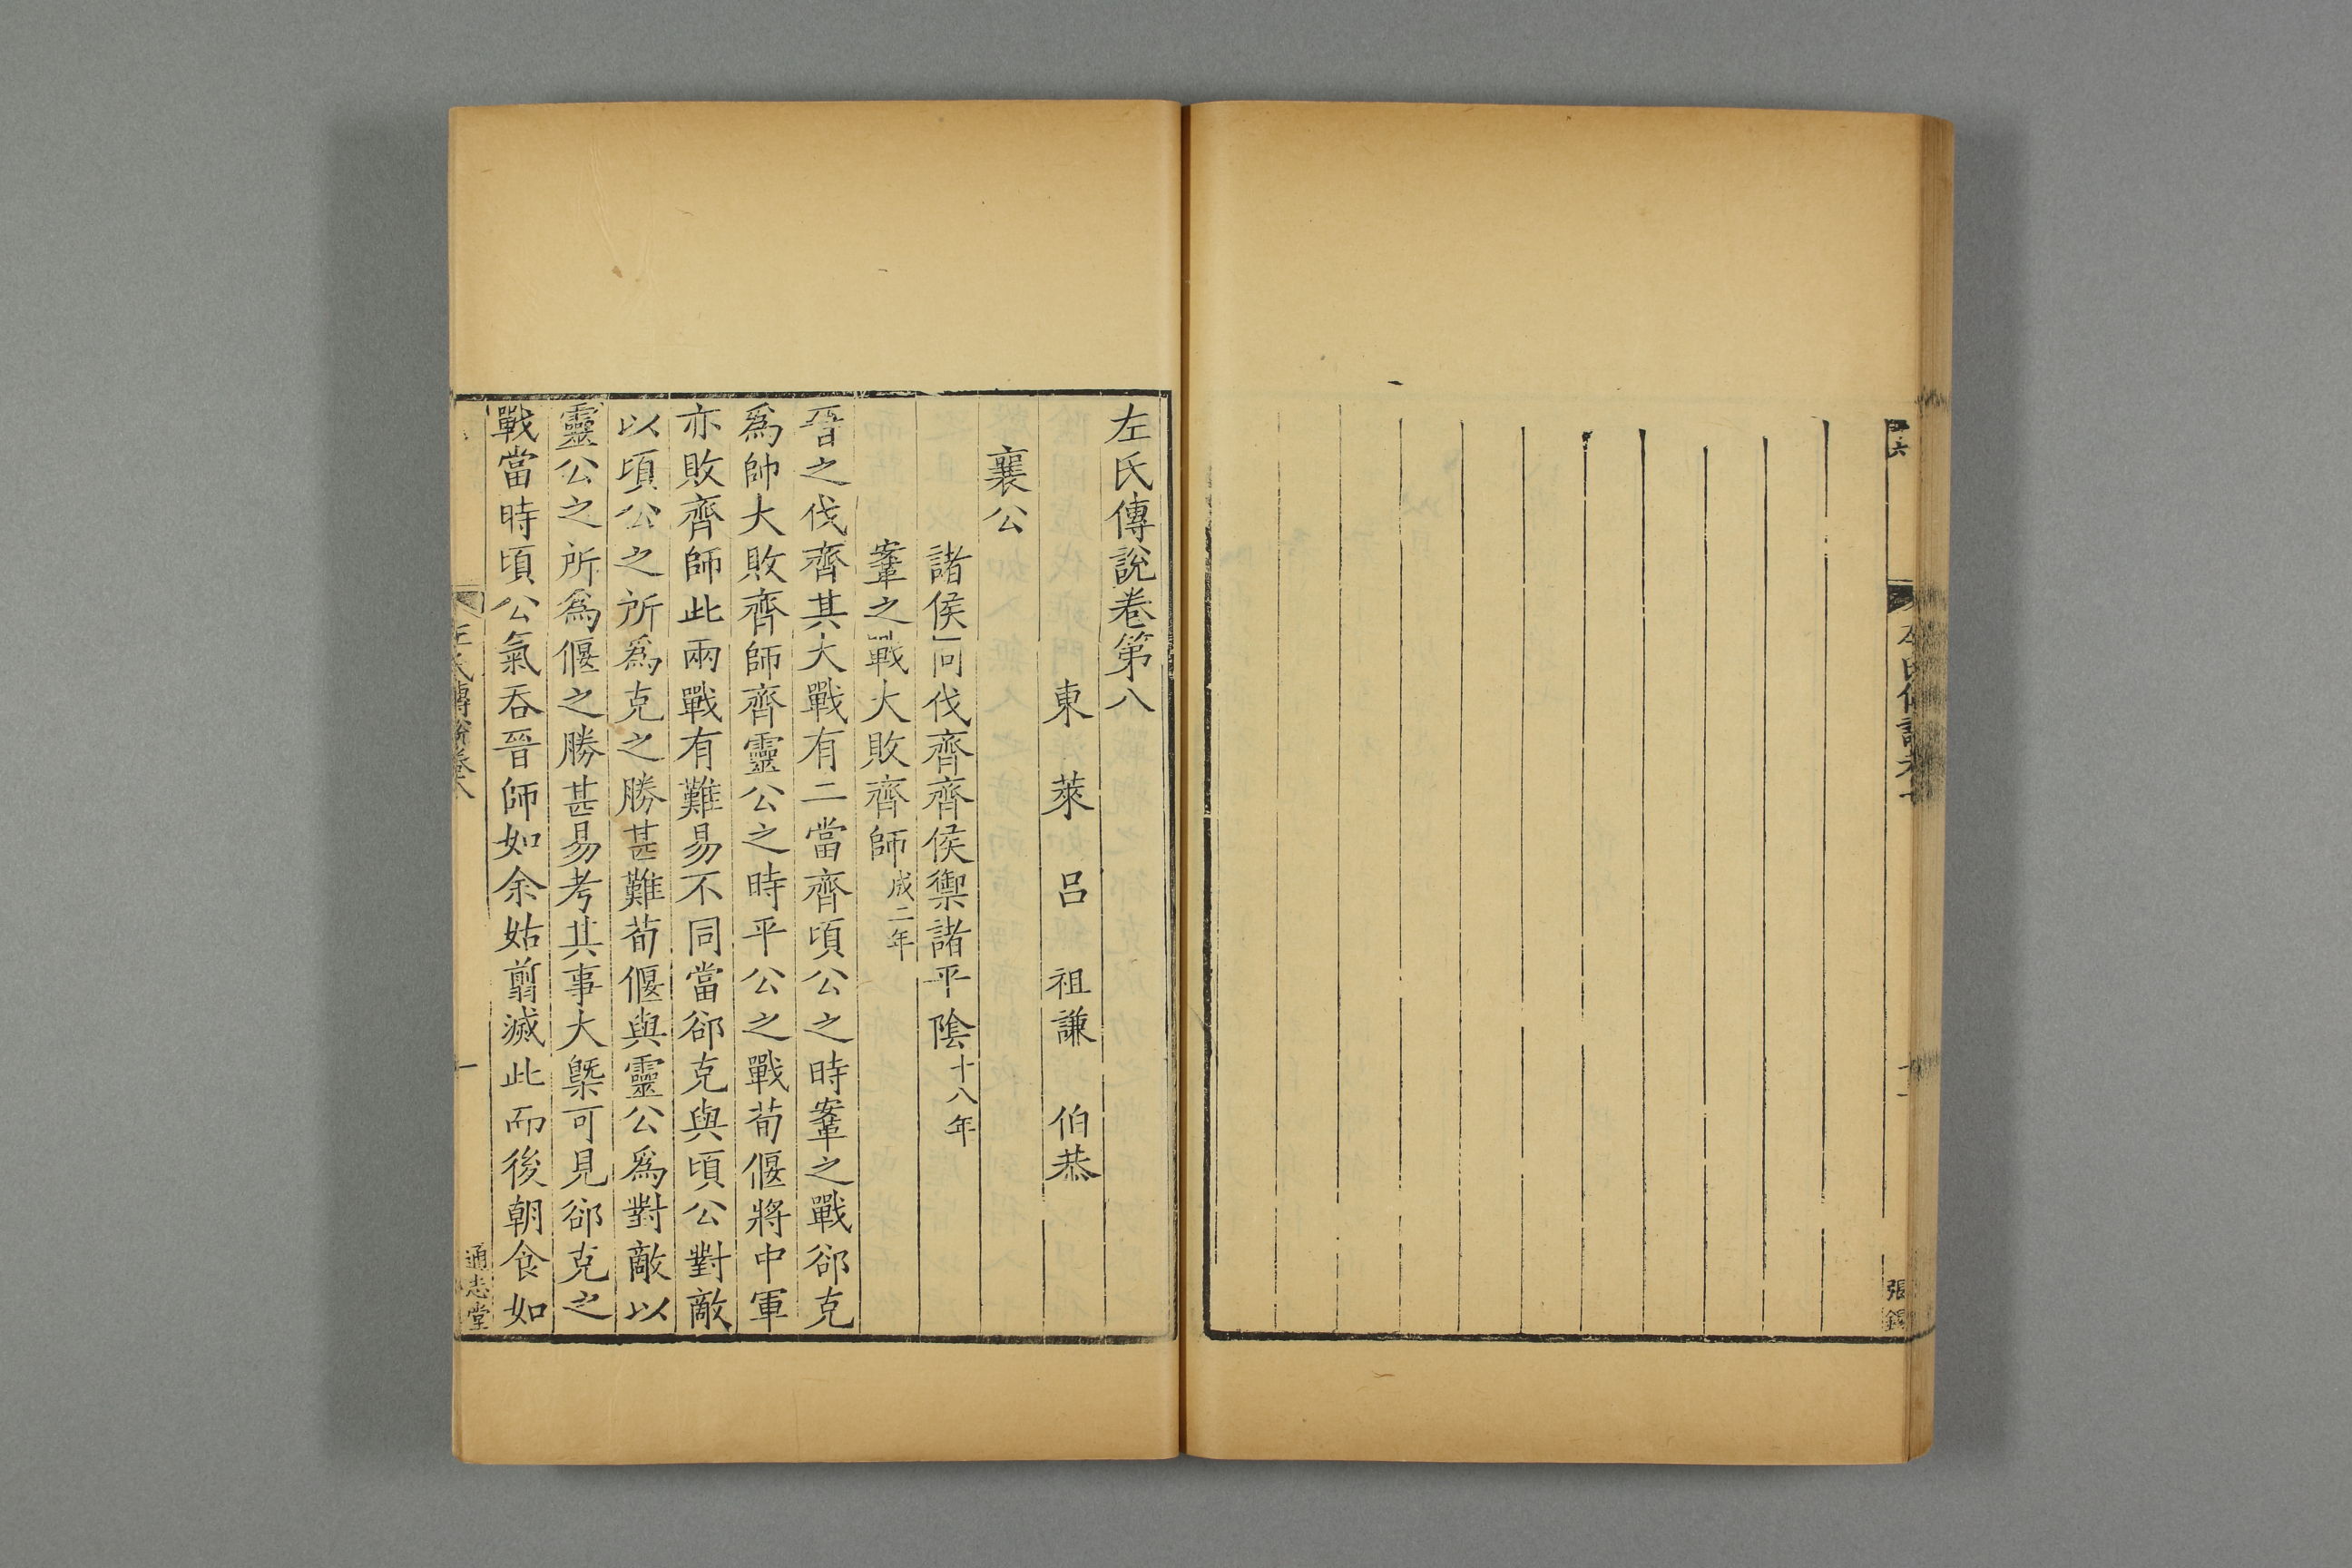 左氏傳說卷第八
東萊呂祖謙伯恭
襄公
諸侯同伐齊齊侯禦諸平陰十八年
鞌之戰大敗齊師成二年
晉之伐齊其大戰有二當齊頃公之時鞌之戰郤克
爲帥大敗齊師齊靈公之時平公之戰荀偃將中軍
亦敗齊師此兩戰有難易不同當郤克與頃公對敵
以頃公之所爲克之勝甚難荀偃與靈公爲對敵以
靈公之所爲偃之勝甚易考其事大槩可見郤克之
戰當時頃公氣吞晉師如余姑翦滅此而後朝食如
左氏傳說卷八
一
通志堂